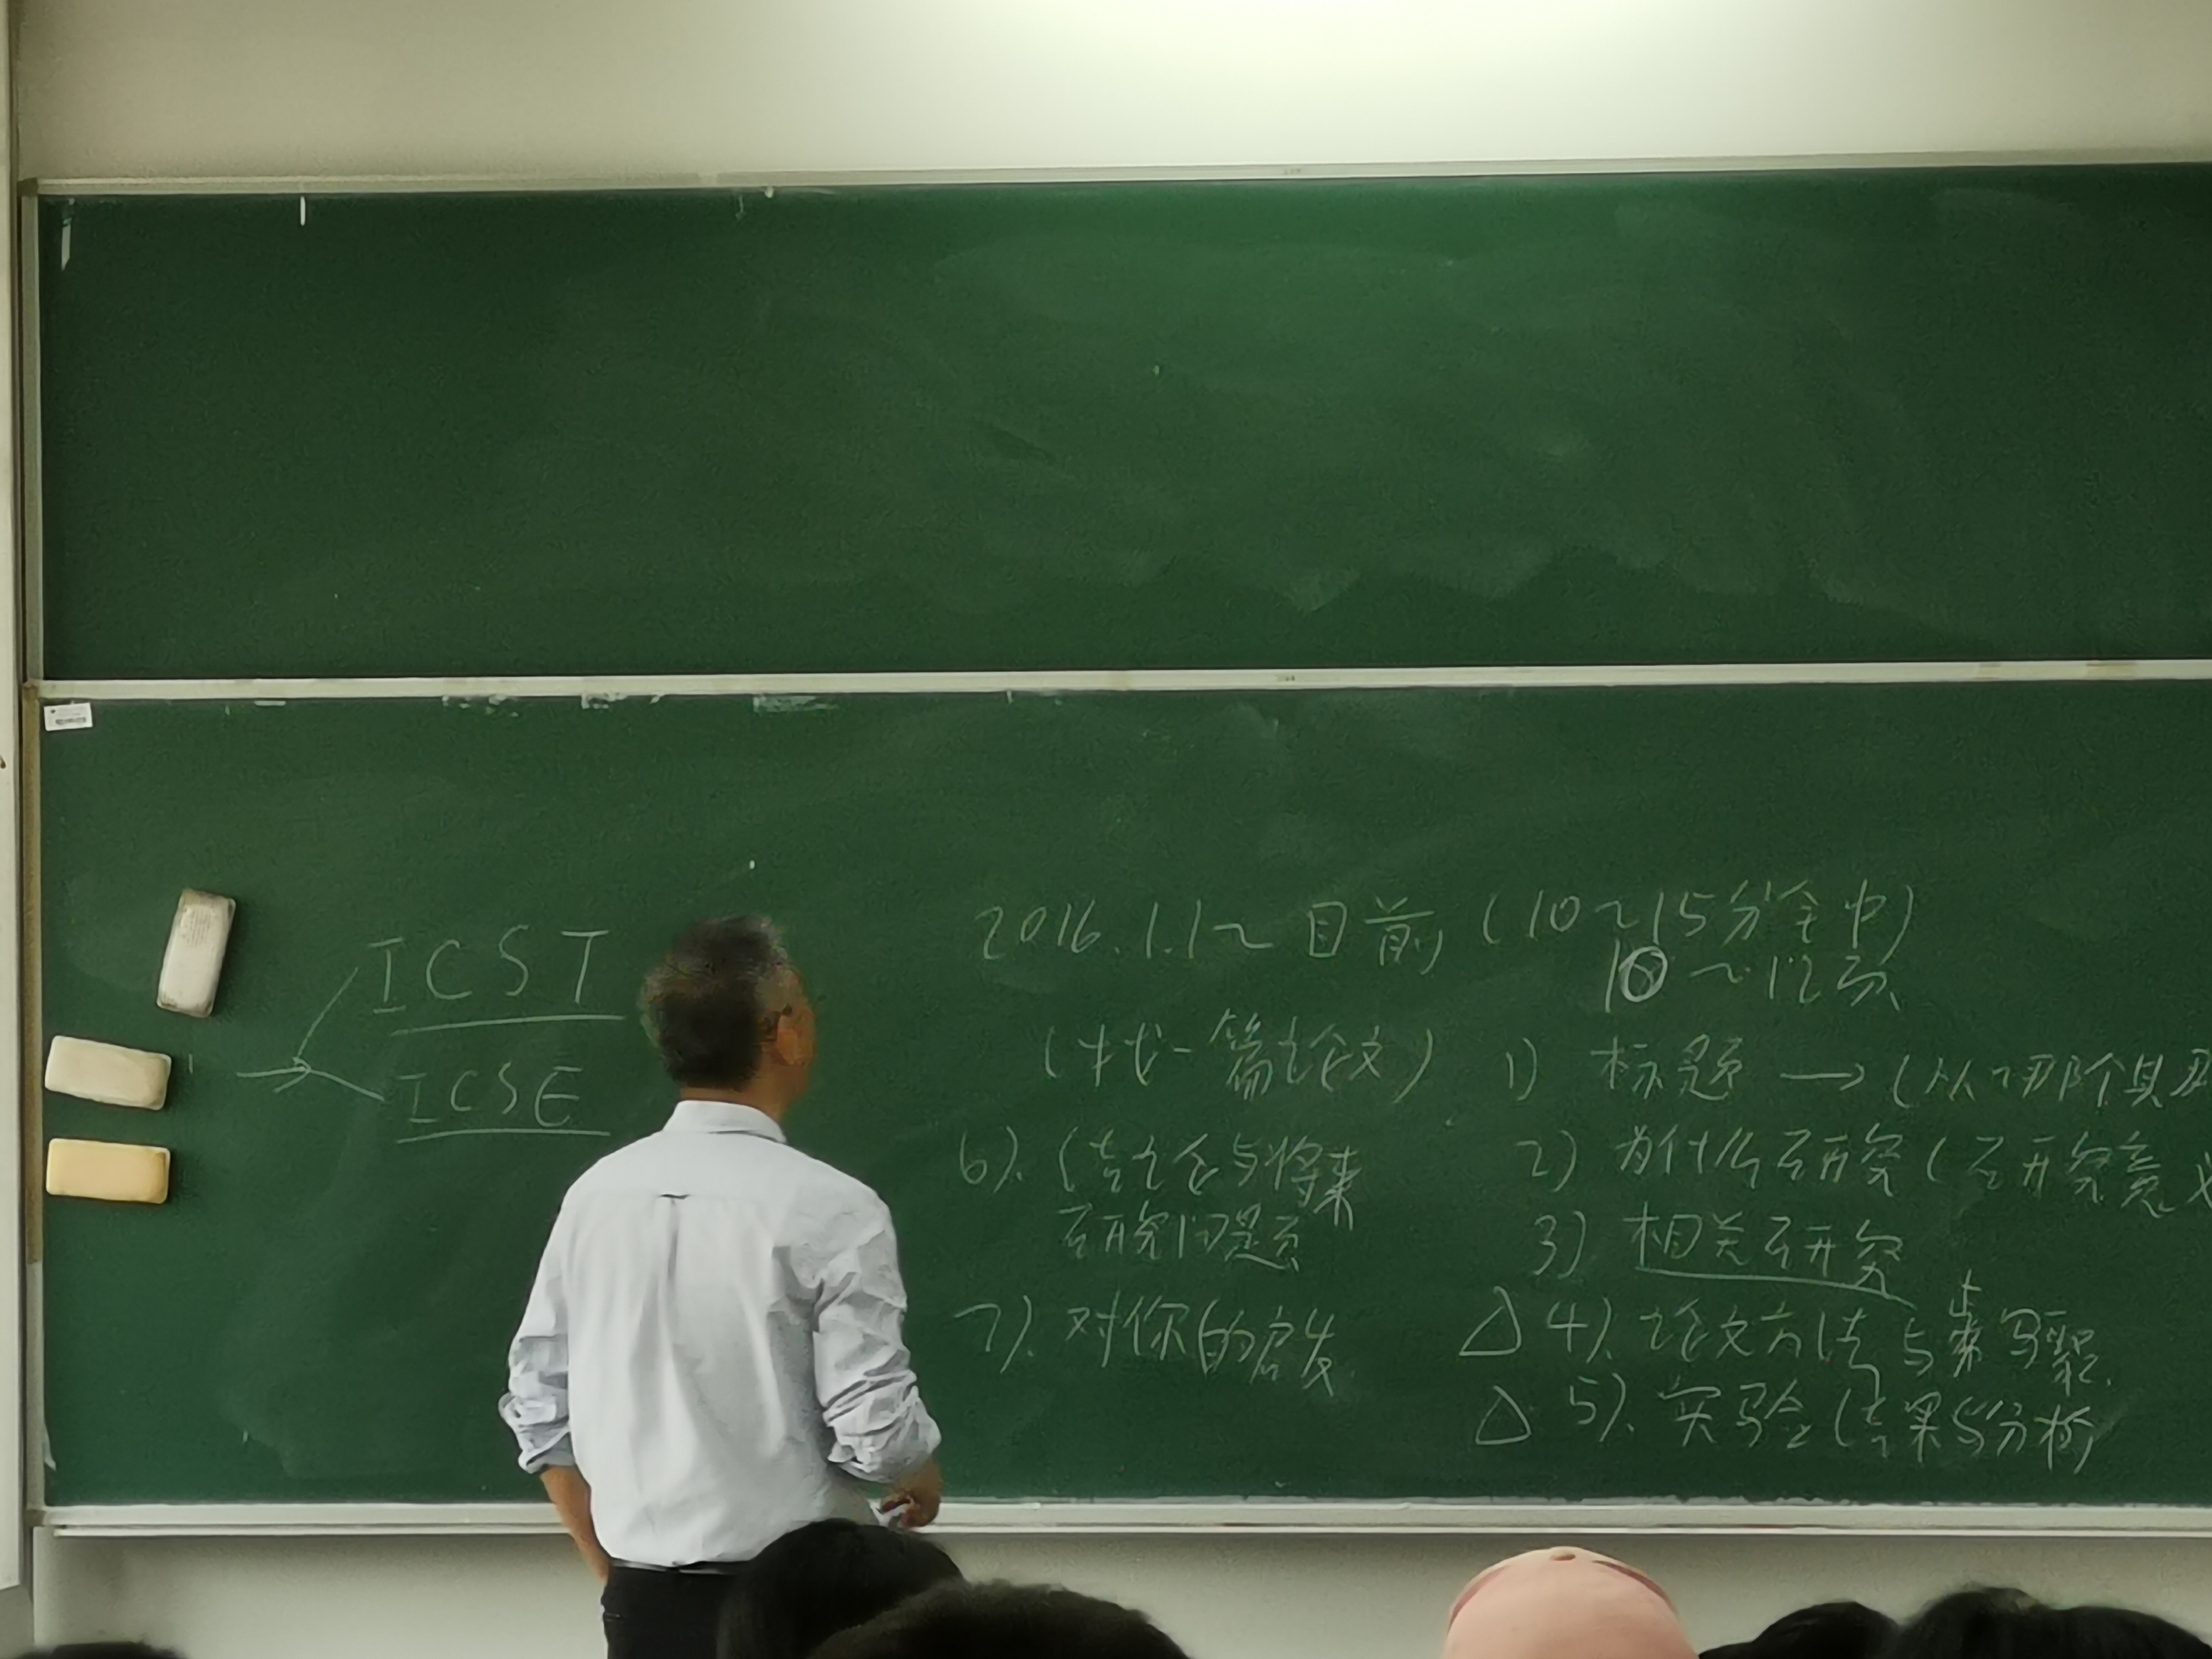 ICST
ICSE
2016.1.1~目前 (10~15分钟)
10~12页
(找一篇论文)
1) 标题 → (从哪个具
2) 为什么研究 (研究意义
3) 相关研究
△ 4). 论文方法与步骤.
△ 5). 实验结果与分析
6). 结论与将来
研究问题
7). 对你的启发.